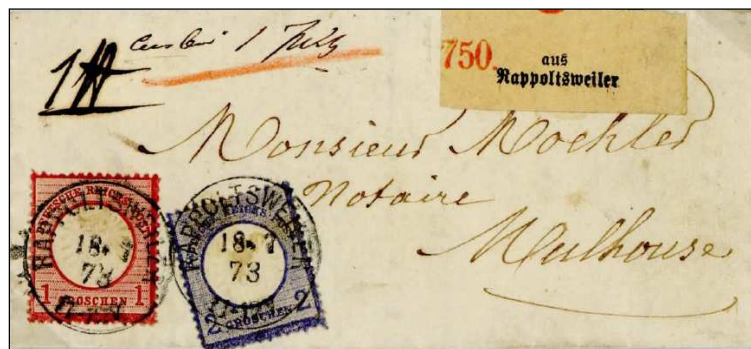 1 July
750.
aus
Rappoltsweiler
Monsieur Moehler
Notaire
Mulhouse
DEUTSCHE REICHS
RAPPOLTSWEILER
18. 73
1 GROSCHEN 1
REICHS
RAPPOLTSWEILER
18. 73
2 GROSCHEN 2